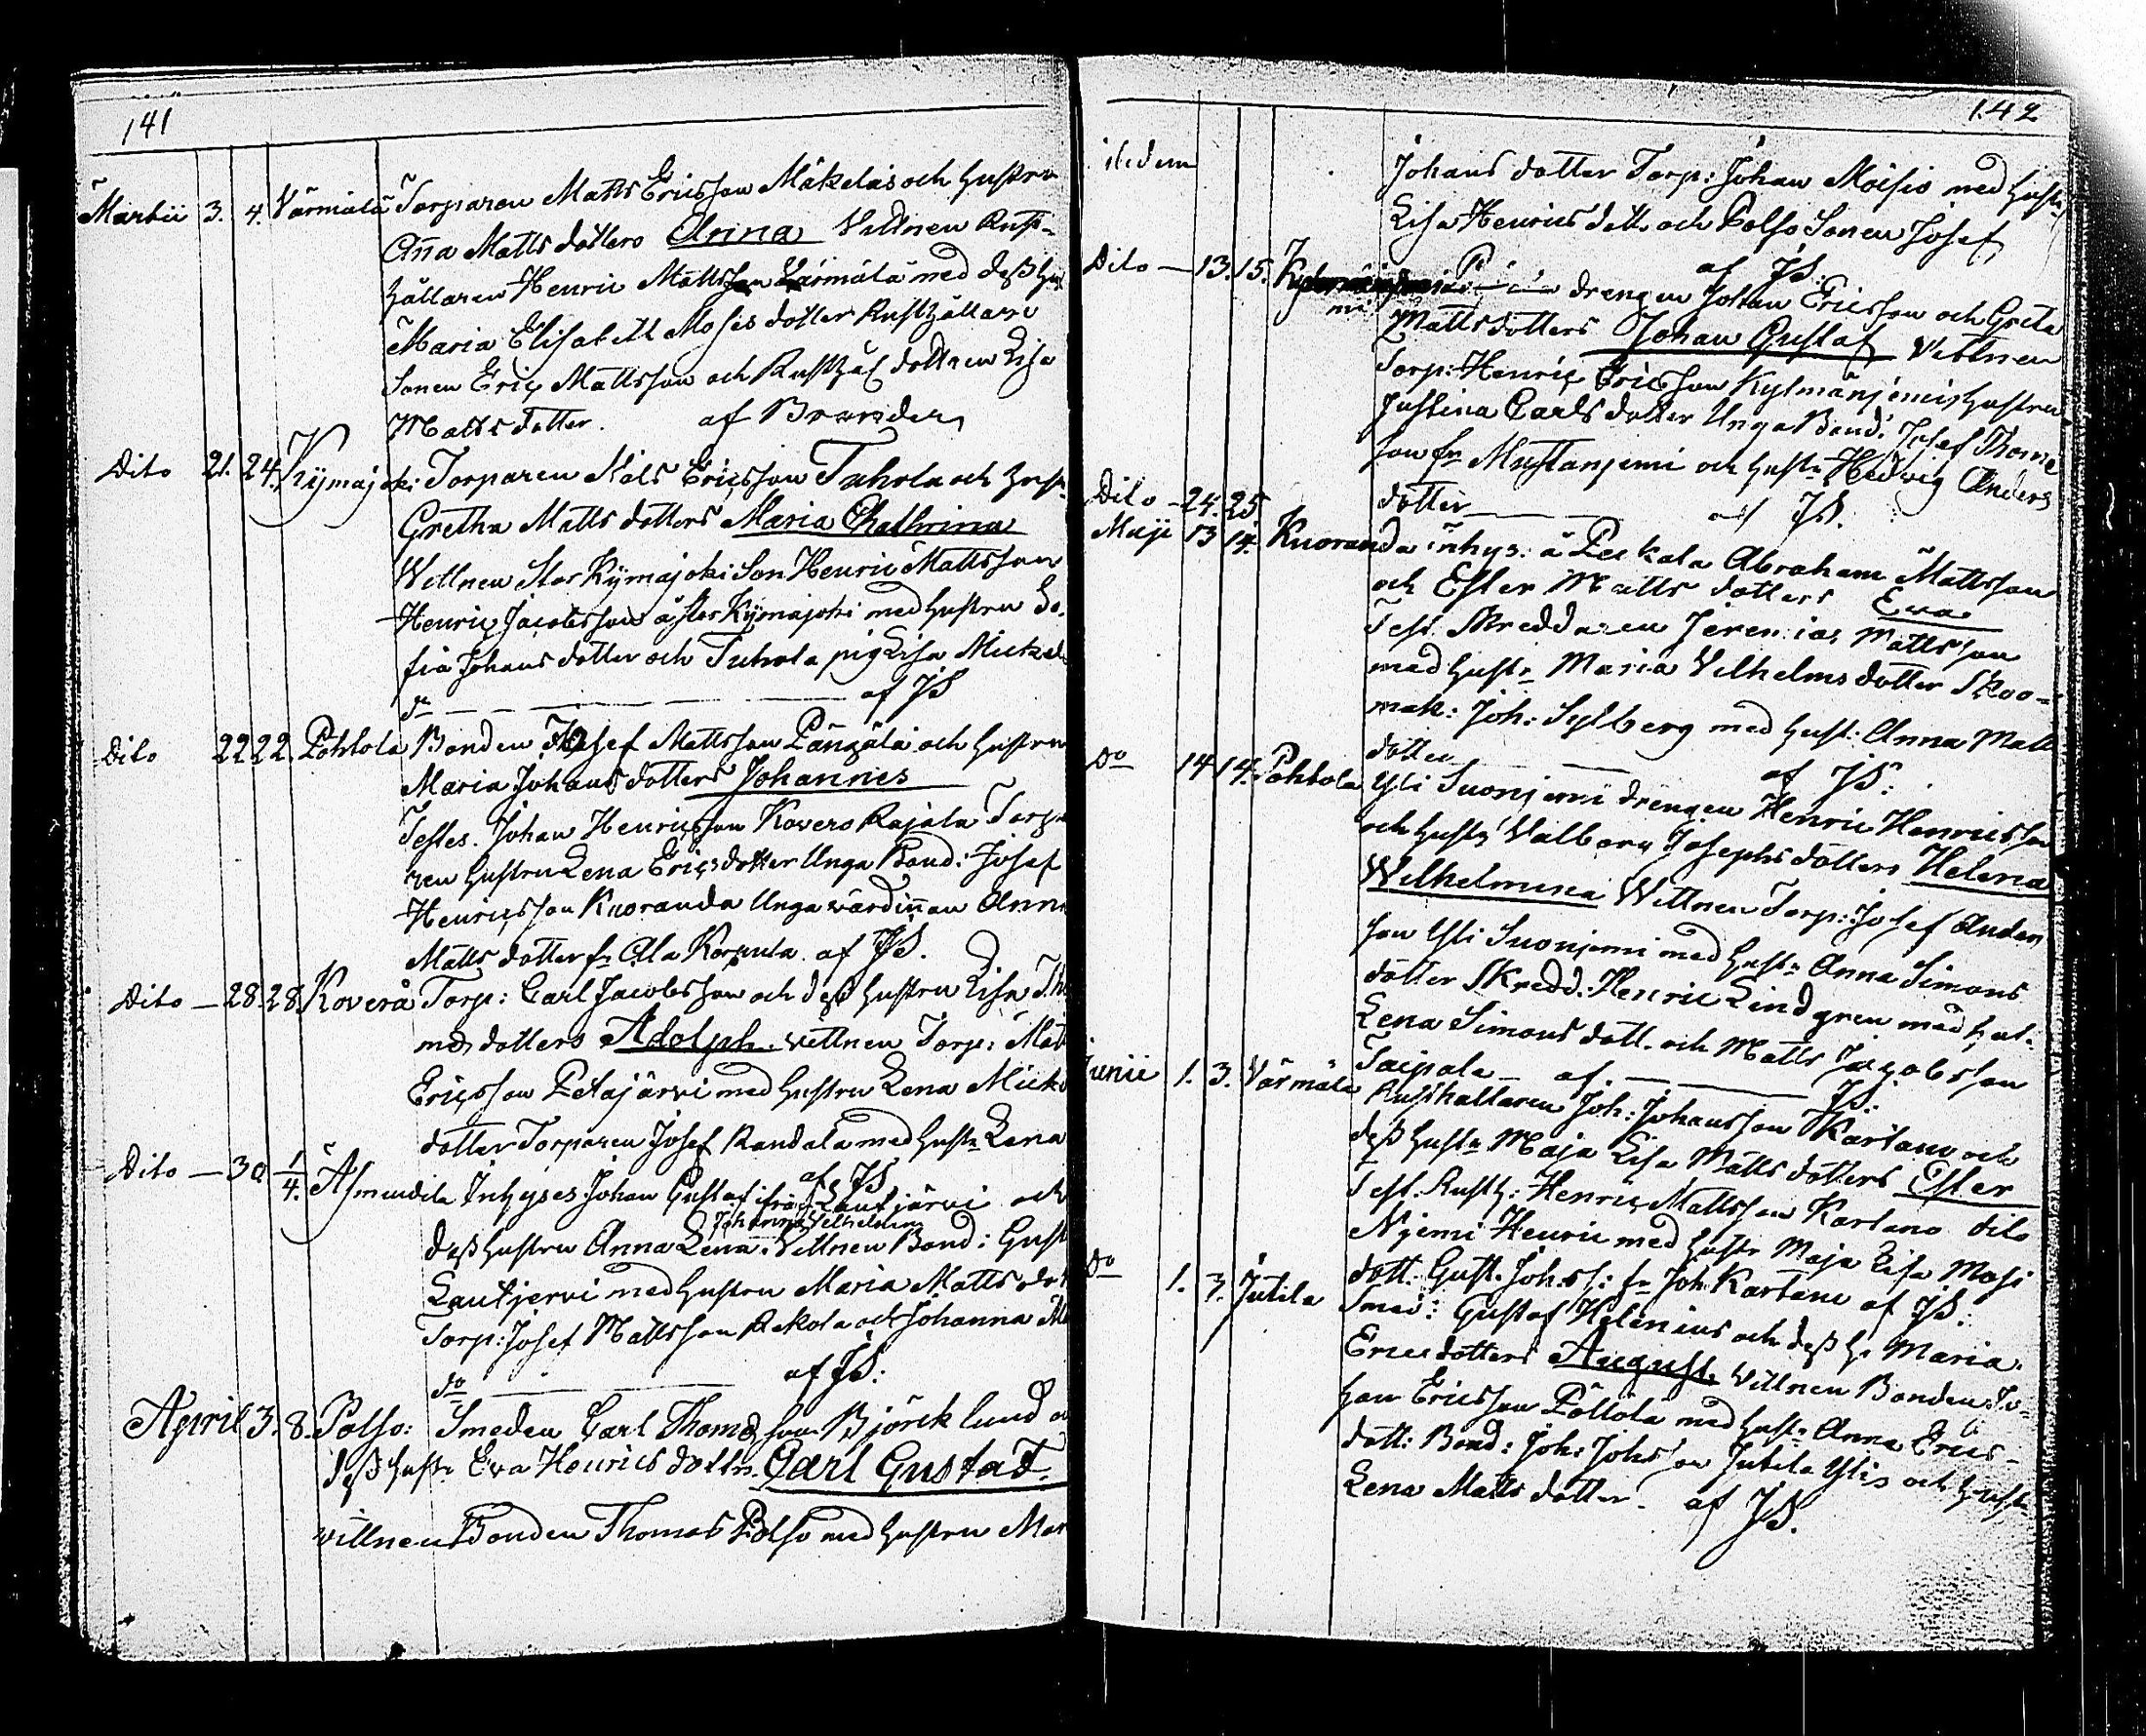 141
Martii 3. 4. Värmälä Torparen Matts Ericsson Mäkeläs och hustru
Aña Matts dotters Anna Vittnen Rust-
hållaren Henric Mattsson Värmälä med dess hu
Maria Elisabeth Moses dotter Rusthållare
Sonen Eric Mattsson och Rusth: dottren Lisa
Matts dotter. af Brander
Dito 21. 24. Kÿmajoki Torparen Mats Ericsson Tuhola och hust
Gretha Matts dotters Maria Chathrina
Wittnen Stor Kÿmajoki Son Henric Mattsson
Henric Jacobsson å Stor Kÿmajoki med hustru So-
fia Johans dotter och Tuhola pig Lisa Mickels
dr af JS
Dito 22 22. Pohtola Bonden Josef Mattsson Pångälä och hustru
Maria Johans dotters Johannes
Testes. Johan Henricsson Kovero Rajala Torpa
ren hustru Lena Erics dotter Unga Bond: Josef
Henricsson Knoranda Unga värdiñan Ann
Matts dotter fr Ala Korpula. af JS.
Dito 28. 28. Koverå Torp: Carl Jacobsson och dess hustru Lisa Th
mas dotters Adolph. vittnen Torp: Mat
Ericsson Petajärvi med hustru Lena Mick
dotter Torparen Josef Randala med hustr Lena
af JS
Dito 30 1/4. Asmundila Inhyses Johan Gustaf ifrå Lautjärvi och
Johanna Vilhelmina
dess hustru Anna Lena. Vittnen Bond: Gust
Lautjervi med hustru Maria Matts dot
Torp: Josef Mattsson Rekola och Johanna M
do af JS:
April 3. 8. Polso: Smeden Carl Thomasson Björcklund o
dess hustr Eva Henrics dotter. Carl Gustaf.
vittnen Bonden Thomas Polso med hustru Mar
142
ibidem Johans dotter Torp: Johan Moisio med hustr
Lisa Henrics dott. och Polso Sonen Josef
af JS:
Dito 13. 15. drengen Johan Ericsson och Greta
Matts dotters Johan Gustaf Vittnen
Torp: Henric Ericsson Kylmänjemi hustru
Justina Carls dotter Unga Bond: Josef Thoma
son fr Mustanjemi och hustr Hedvig Anders
Dito 24. 25 dotter af JS.
Maji 13 14. Knoranda inhys: å Peckala Abraham Mattsson
och Ester Matts dotters Eva
Test. Skreddaren Jeremias Mattsson
med hustr Maria Vilhelms dotter Skoo-
mak: Joh: Sylberg med hust: Anna Matt
dotter af JS:
Do 14 14. Pohtola Yli Suonjemi drengen Henric Henricsson
och hustr Valborg Josephs dotters Helena
Wilhelmina Wittnen Torp: Josef Anders
son Yli Suonjemi med hustr Anna Simons
dotter Skredd: Henric Lindgren med hust:
Lena Simons dott. och Matts Jacobsson
Taipale af JS:
Junii 1. 3. Värmälä Rusthållaren Joh: Johansson Kartano och
dess hustr Maja Lisa Matts dotters Ester
Test. Rusth: Henric Mattsson Kartano dito
Njemi Henric med hustr Maja Lisa Mosi
dott. Gust. Joh.ss: fr Joh Kartano af JS:
Do 1. 3. Jutila Smed: Gustaf Helenius och dess h. Maria
Erics dotters August. Vittnen Bonden Jo-
han Ericsson Pöllölä med hustr Anna Erics-
dott: Bond: Joh: Johsson Jutila Ylis och hustr
Lena Matts dotter. af JS.